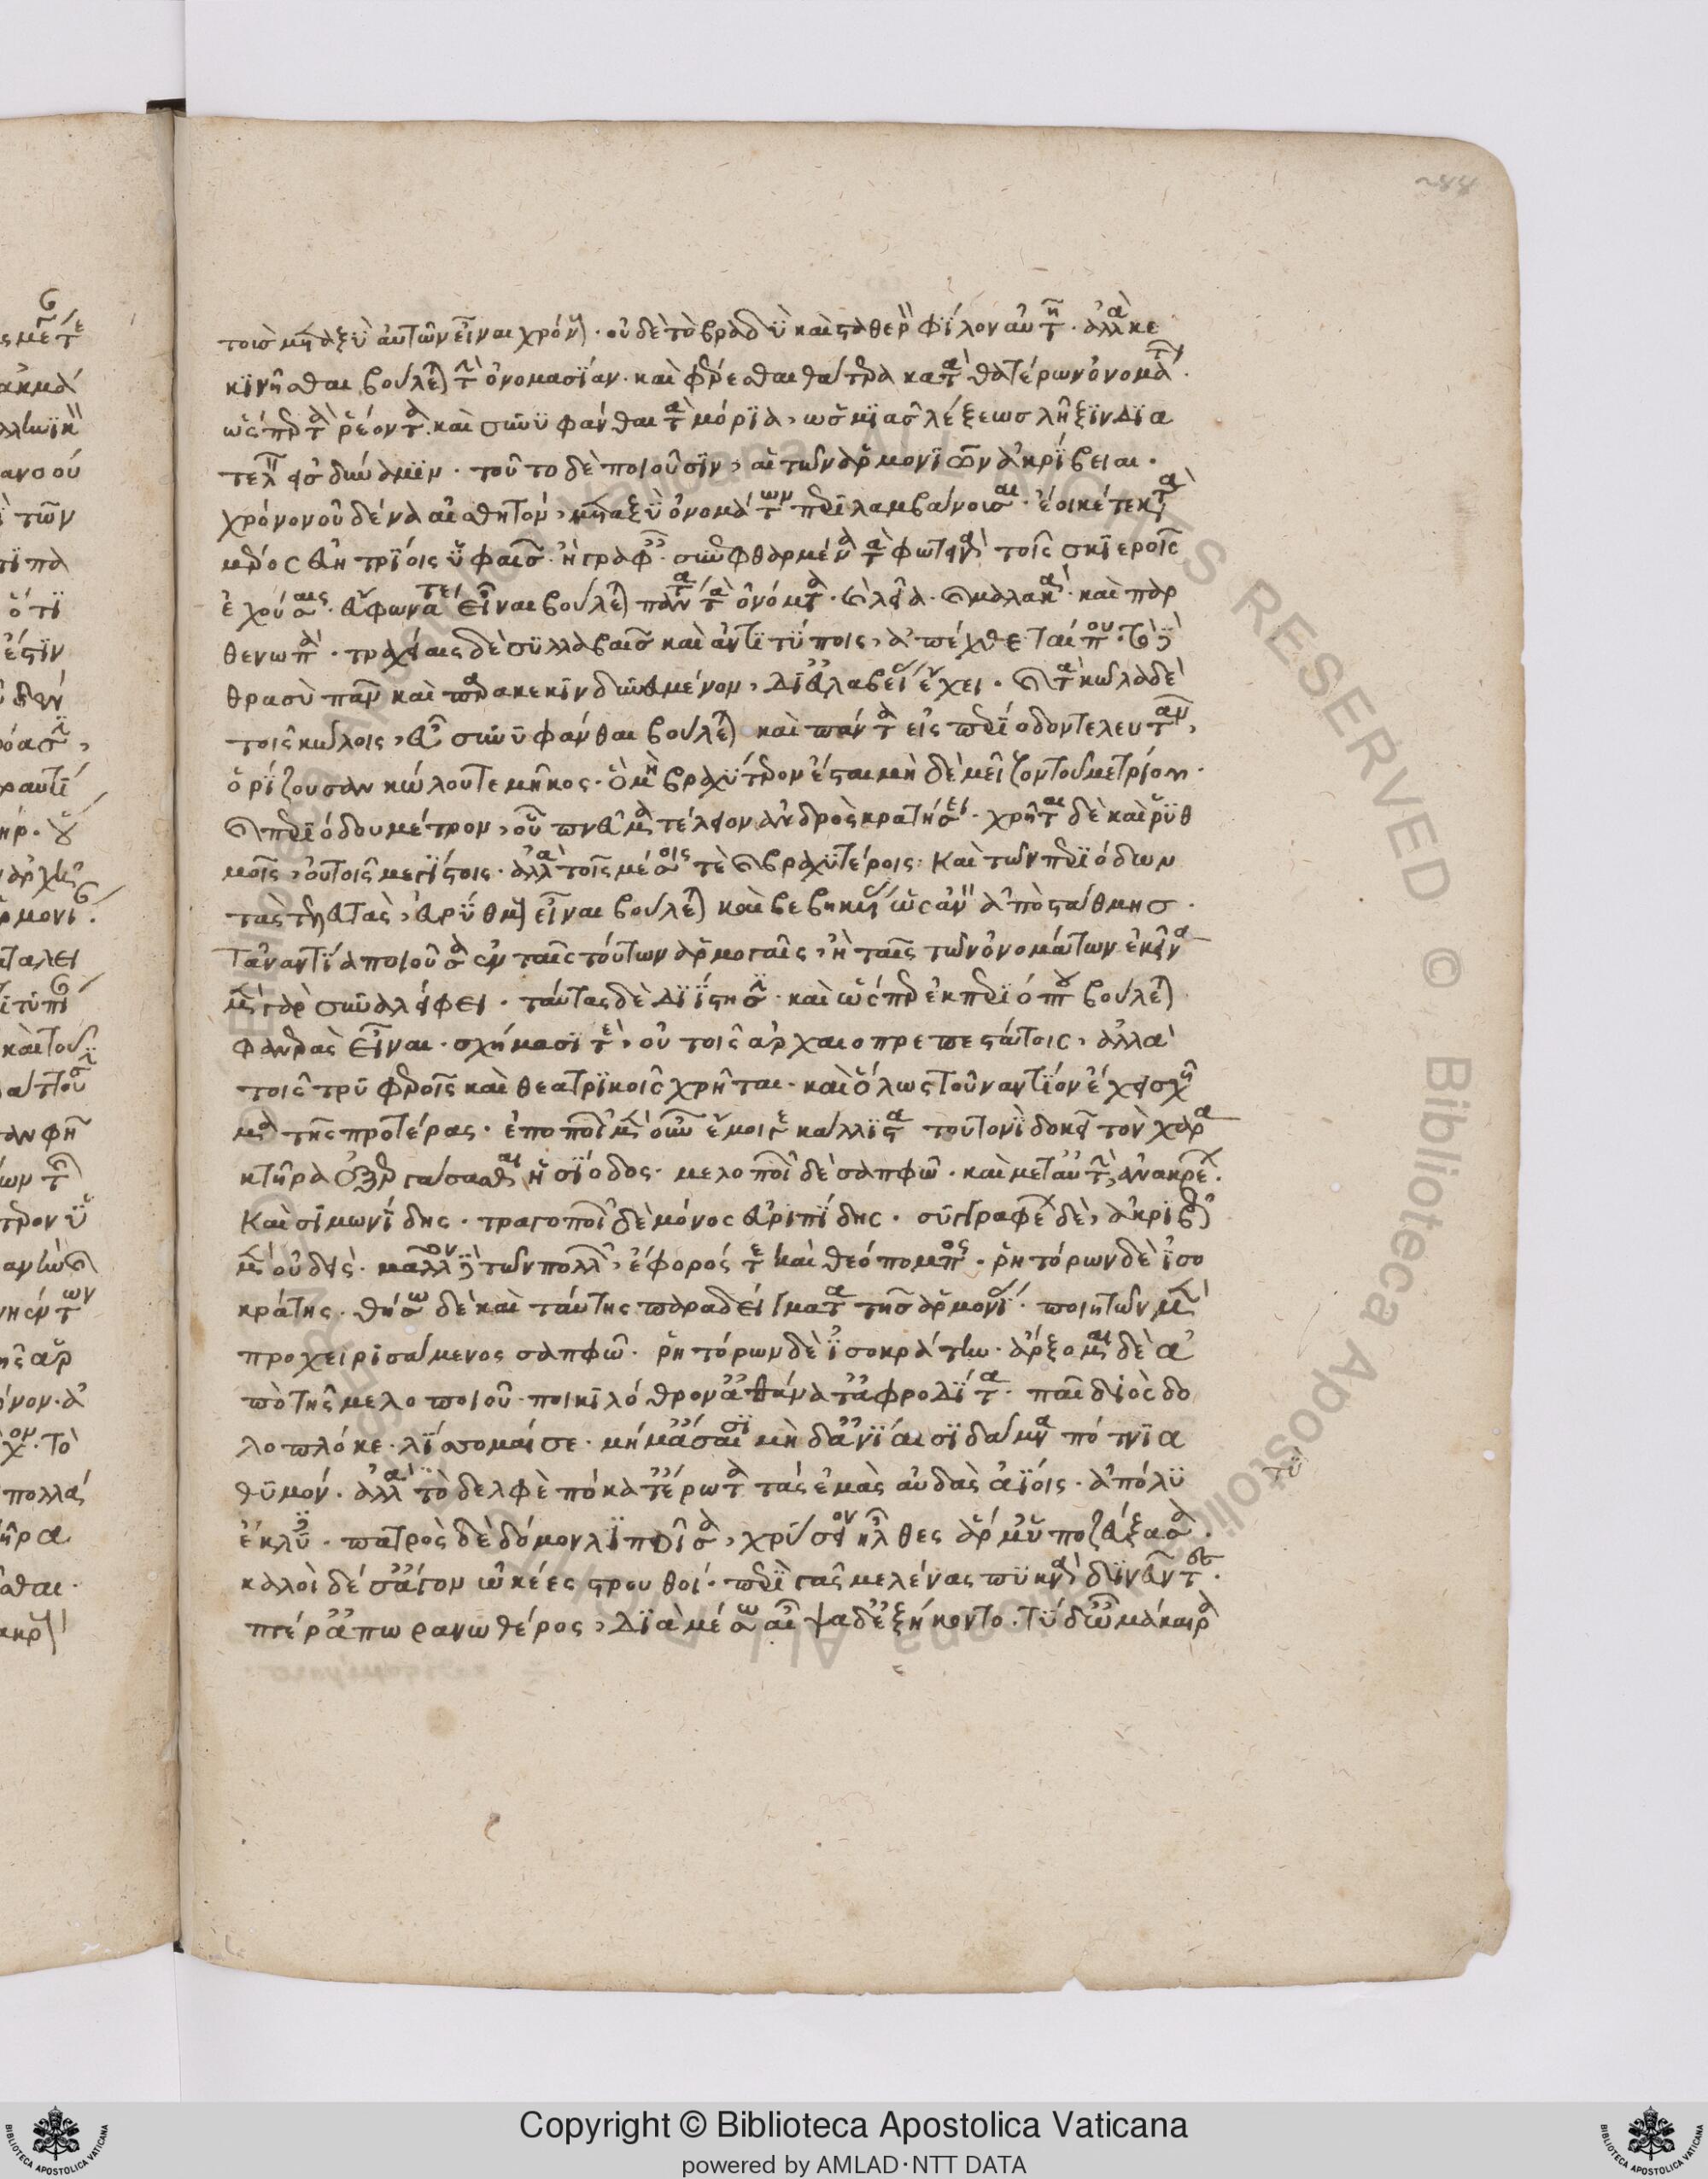 τοις μεταξὺ αὐτῶν εἶναι χρόνον· οὐδὲ τὸ βραδὺ καὶ σταθερὸν φίλον αὐτῇ· ἀλλὰ κε
κινῆσθαι βούλεται τὴν ὀνομασίαν· καὶ φέρεσθαι θάτερα κατὰ θατέρων ὀνομάτων·
ὥσπερ τὰ ῥέοντα· καὶ συνυφάνθαι τὰ μόρια, ὡς μιᾶς λέξεως λῆξιν δια
τελεῖ εἰς δύναμιν· τοῦτο δὲ ποιοῦσιν, αἱ τῶν ἁρμονιῶν ἀκρίβειαι·
χρόνον οὐδένα αἰσθητόν, μεταξὺ ὀνομάτων περιλαμβάνουσαι· ἔοικέ τε κατὰ
μέρος εὐητρίοις ὕφαις· ἢ γραφαῖς συνεφθαρμένα τὰ φωτεινὰ τοῖς σκιεροῖς
ἐχούσαις· εὔφωνά τε εἶναι βούλεται πάντα τὰ ὀνόματα· καὶ λεῖα· καὶ μαλακά· καὶ παρ
θενωπά· τραχείαις δὲ συλλαβαῖς καὶ ἀντιτύποις, ἀπέχθεταί που· τὸ δὲ
θρασὺ πᾶν καὶ παρακεκινδυνευμένον, δι' εὐλαβείας ἔχει· καὶ τὰ κῶλα δὲ
τοῖς κώλοις, εὖ συνυφάνθαι βούλεται καὶ πάντα εἰς περίοδον τελευτᾶν,
ὁρίζουσαν κώλου τε μῆκος· ὃ μὴ βραχύτερον ἔσται μὴ δὲ μεῖζον τοῦ μετρίου·
καὶ περιόδου μέτρον, οὗ πνεῦμα τέλειον ἀνδρὸς κρατήσει· χρῆται δὲ καὶ ῥυθ
μοῖς, οὐ τοῖς μεγίστοις· ἀλλὰ τοῖς μέσοις τε καὶ βραχυτέροις· καὶ τῶν περιόδων
τὰς τελευτὰς, εὐρύθμους εἶναι βούλεται καὶ βεβηκυίας ὡς ἂν ἀπὸ στάθμης·
τἀναντία ποιοῦσα ἐν ταῖς τούτων ἁρμογαῖς, ἢ ταῖς τῶν ὀνομάτων ἐκεῖνα
μὲν γὰρ συναλείφει· ταύτας δὲ διίστησι· καὶ ὥσπερ ἐκ περιόπτου βούλεται
φανερὰς εἶναι· σχήμασί τε, οὐ τοῖς ἀρχαιοπρεπεστάτοις, ἀλλὰ
τοῖς τρυφεροῖς καὶ θεατρικοῖς χρῆται· καὶ ὅλως τοὐναντίον ἔχει σχῆ
μα τῆς προτέρας· ἐποποιῶν μὲν οὖν ἔμοιγε κάλλιστα τουτονὶ δοκεῖ τὸν χαρα
κτῆρα ἐξεργάσασθαι ἡσίοδος· μελοποιῶν δὲ σαπφώ· καὶ μετ' αὐτὴν, ἀνακρέων·
καὶ σιμωνίδης· τραγοποιῶν δὲ μόνος εὐριπίδης· συγγραφέων δὲ, ἀκριβῶς
μὲν οὐδείς· μᾶλλον δὲ τῶν πολλῶν, ἔφορός τε καὶ θεόπομπος· ῥητόρων δὲ ἰσο
κράτης· θήσω δὲ καὶ ταύτης παραδείγματα τῆς ἁρμονίας· ποιητῶν μὲν
προχειρισάμενος σαπφώ· ῥητόρων δὲ ἰσοκράτην· ἄρξομαι δὲ ἀ
πὸ τῆς μελοποιοῦ· ποικιλόθρον' ἀθάνατ' ἀφροδίτα· παῖ διὸς δο
λοπλόκε· λίσσομαί σε· μή μ' ἄσαισι μὴ δ' ἀνίαισι δάμνα πότνια
θυμόν· ἀλλὰ τὸ δελφὲ πόκα τ' ἔρωτα τὰς ἐμὰς αὐδὰς ἀΐοις· ἀπόλυ
ἔκλυε· πατρὸς δὲ δόμον λιποῖσα, χρύσειον ἦλθες ἅρμ' ὑποζεύξασα·
καλοὶ δέ σ' ἆγον ὠκέες στρουθοί· περὶ γᾶς μελένας πυκνὰ δινεῦντες·
πτέρ' ἀπωρανωθέρος, διὰ μέσω αἶψα δ' ἐξήκοντο· τὺ δ' ὦ μάκαιρα